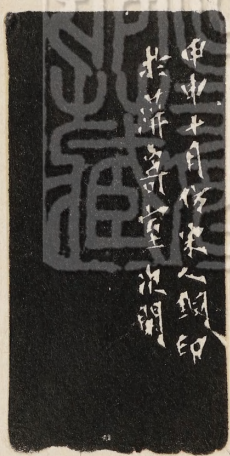 甲申十月仿宋人銅印
於萍寄室次閑